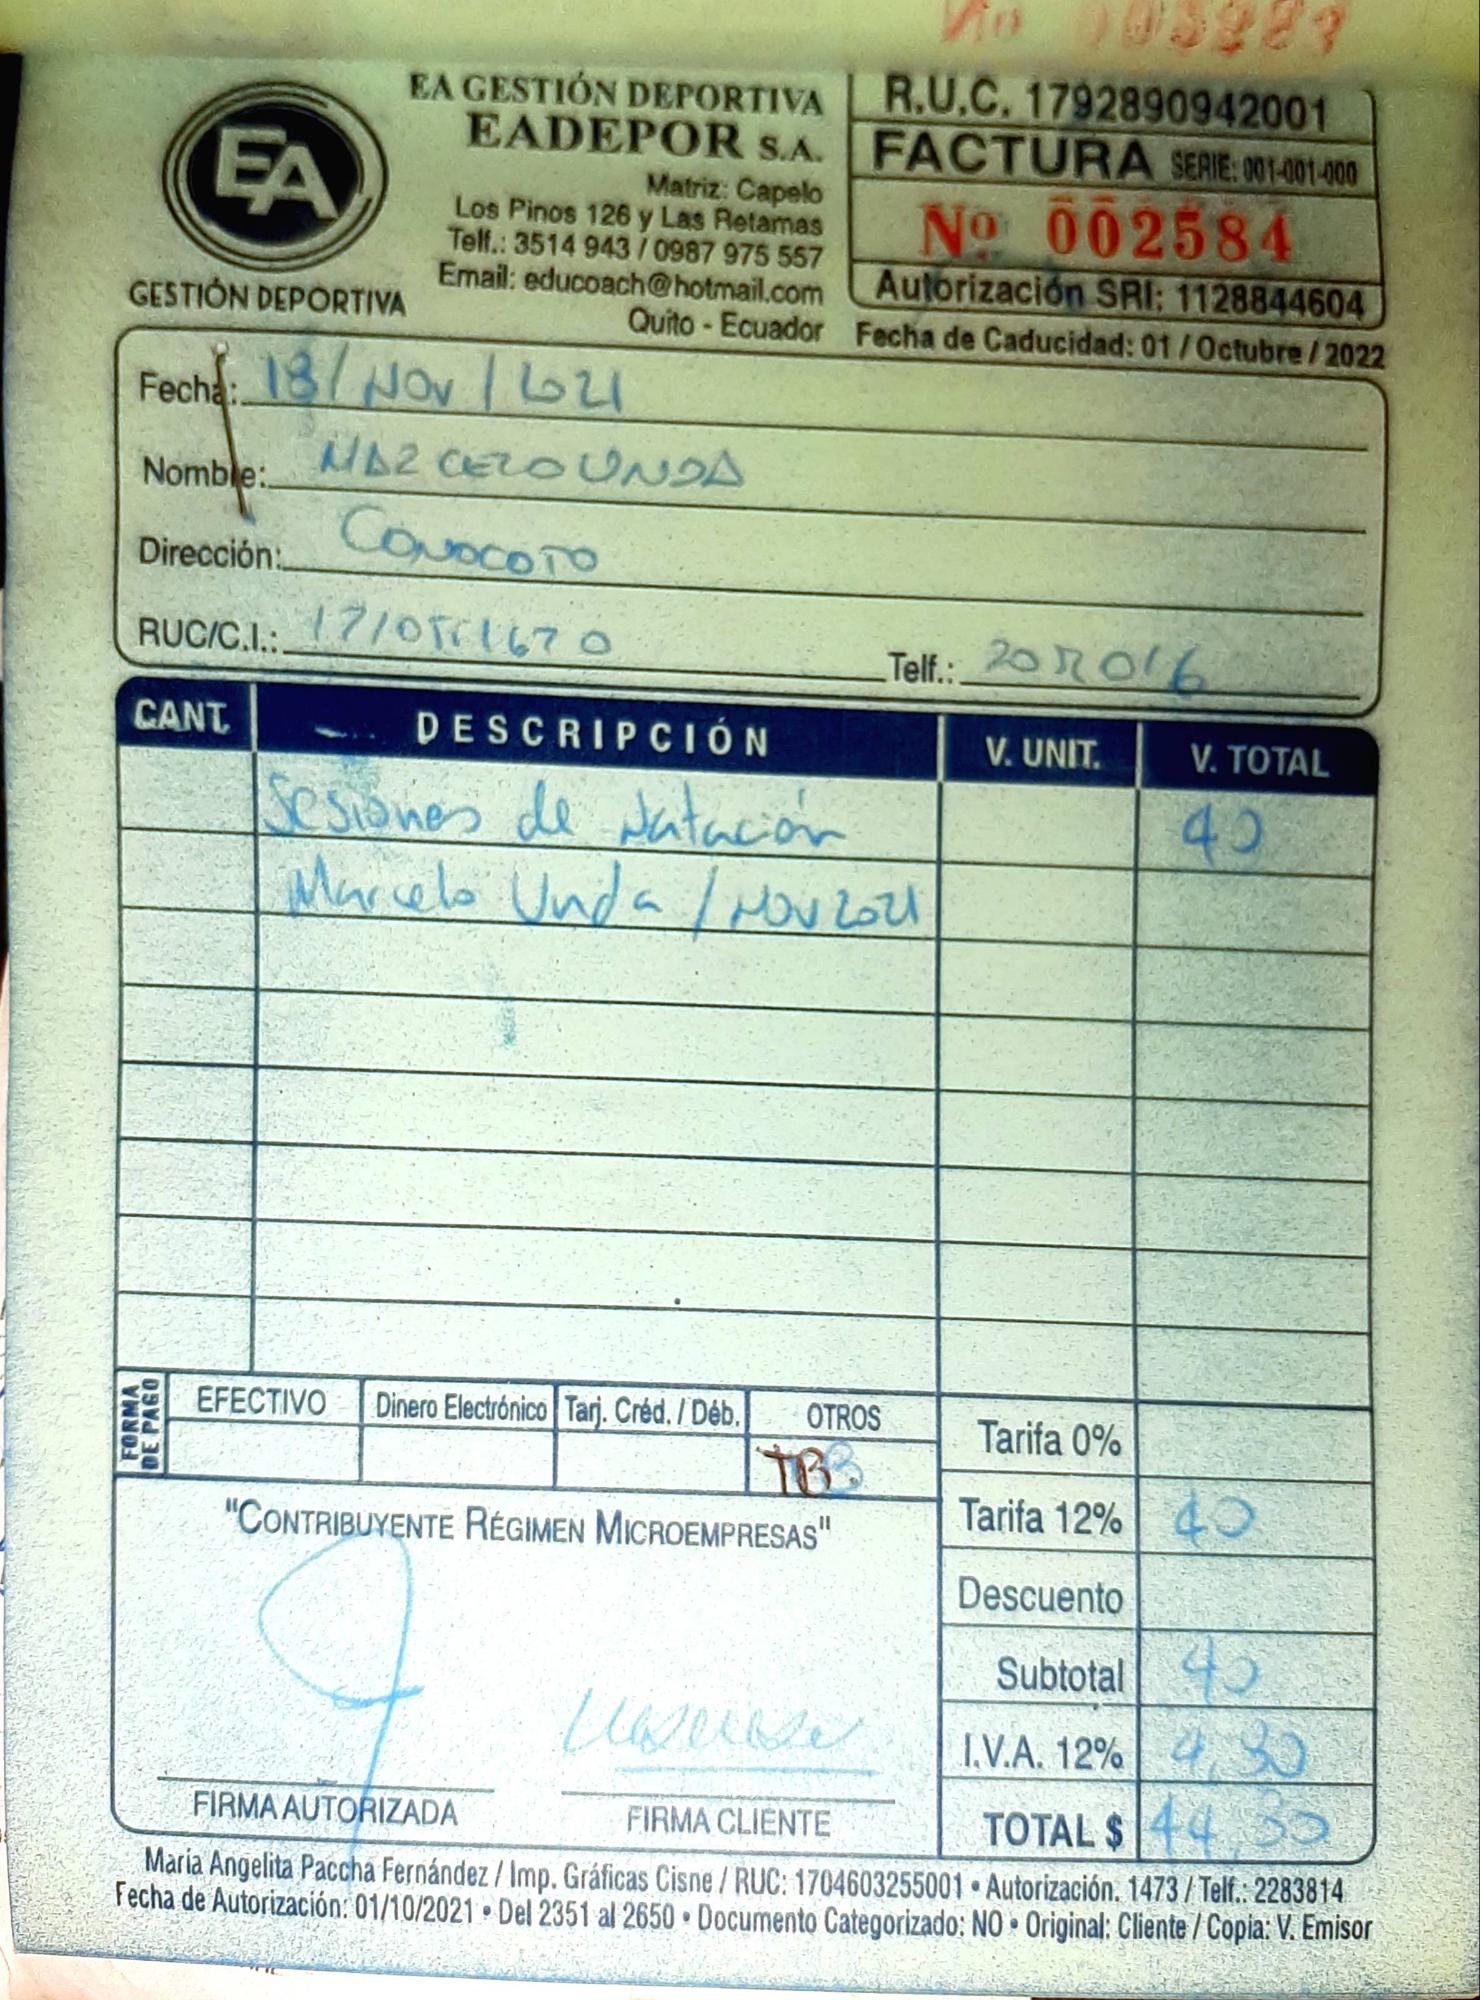 EA GESTIÓN DEPORTIVA
EADEPOR S.A.
Matriz: Capelo
Los Pinos 126 y Las Retamas
Telf.: 3514 943 / 0987 975 557
Email: educoach@hotmail.com
Quito - Ecuador
EA
GESTIÓN DEPORTIVA
R.U.C. 1792890942001
FACTURA SERIE: 001-001-000
Nº 002584
Autorización SRI: 1128844604
Fecha de Caducidad: 01 / Octubre / 2022
Fecha: 18/NOV/2021
Nombre: MARCELO UNDA
Dirección: CONOCOTO
RUC/C.I.:
Telf.:
CANT. DESCRIPCIÓN V. UNIT. V. TOTAL
Sesiones de Natación 40
Marcelo Unda / NOV 2021
FORMA DE PAGO
EFECTIVO Dinero Electrónico Tarj. Créd. / Déb. OTROS
TB
Tarifa 0%
Tarifa 12% 40
Descuento
Subtotal 40
I.V.A. 12% 4,80
TOTAL $ 44,80
"CONTRIBUYENTE RÉGIMEN MICROEMPRESAS"
FIRMA AUTORIZADA FIRMA CLIENTE
María Angelita Paccha Fernández / Imp. Gráficas Cisne / RUC: 1704603255001 • Autorización. 1473 / Telf.: 2283814
Fecha de Autorización: 01/10/2021 • Del 2351 al 2650 • Documento Categorizado: NO • Original: Cliente / Copia: V. Emisor